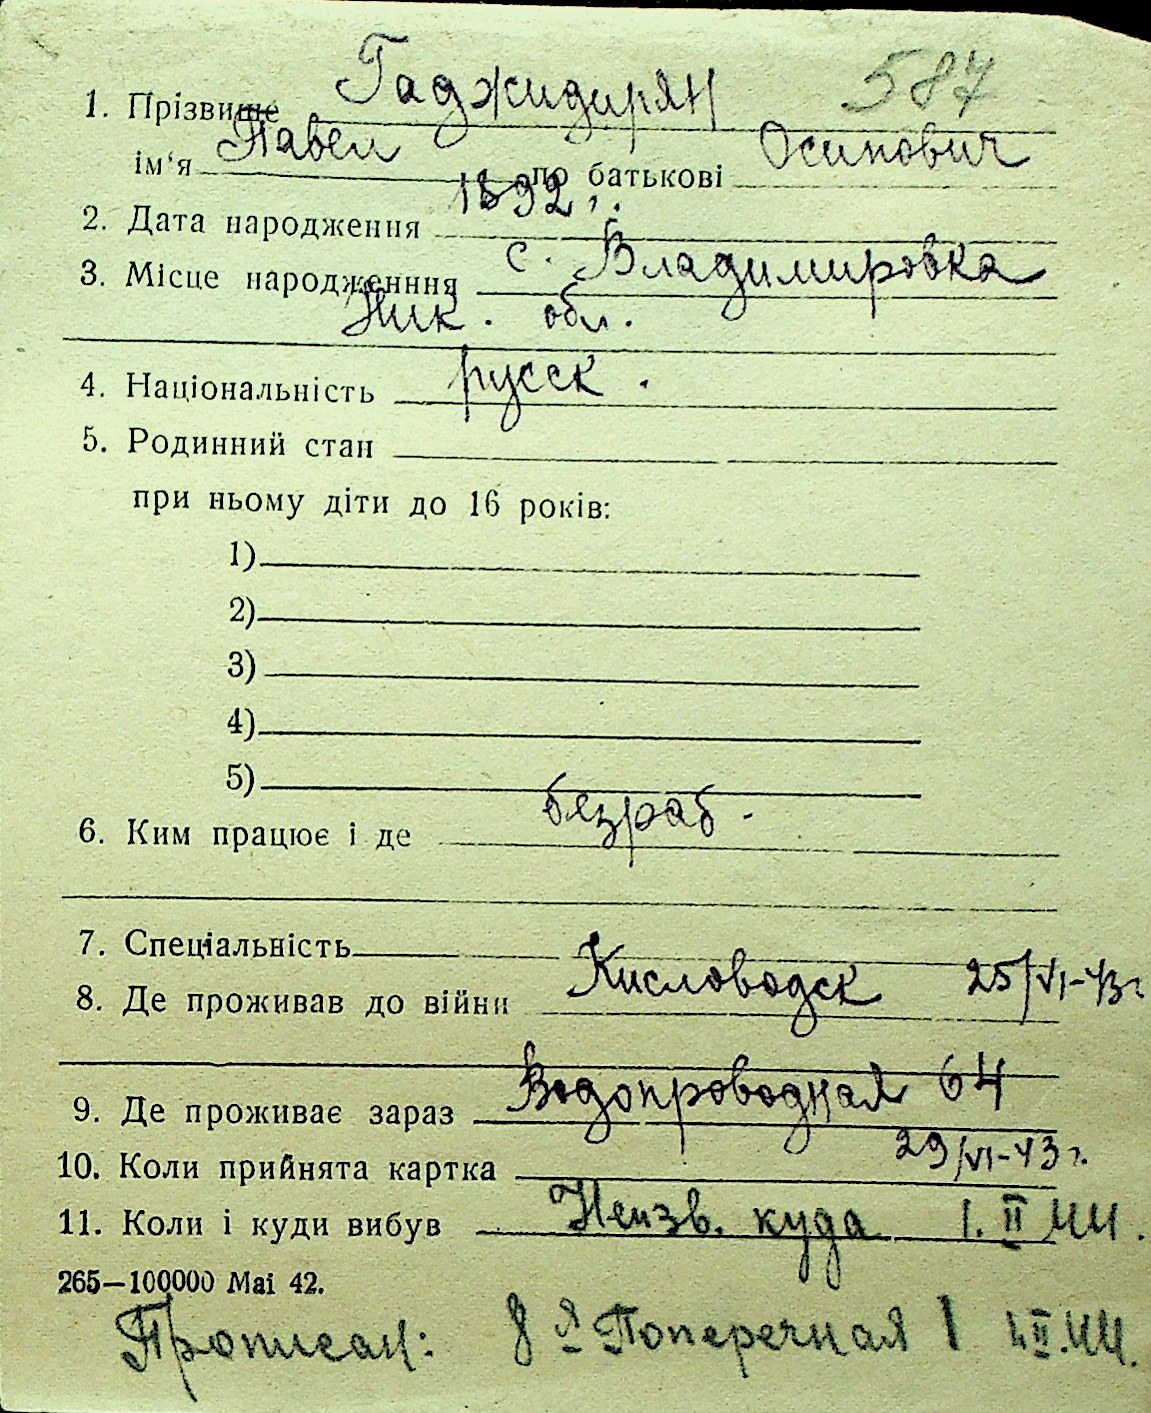 587
1. Прізвище Гаджидирян
ім‘я Павел по батькові Осипович
2. Дата народження 1892 г.
3. Місце народженння с. Владимировка
Ник. обл.
4. Національність русск.
5. Родинний стан
при ньому діти до 16 років:
1)
2)
3)
4)
5)
6. Ким працює і де безраб.
7. Спеціальність
8. Де проживав до війни Кисловодск 25/VI-43 г.
9. Де проживає зараз Водопроводная 64
10. Коли прийнята картка 29/VI-43 г.
11. Коли і куди вибув Неизв. куда 1. II 44.
265—100000 Mai 42.
Прописан: 8 я Поперечная 1 4.II.44.